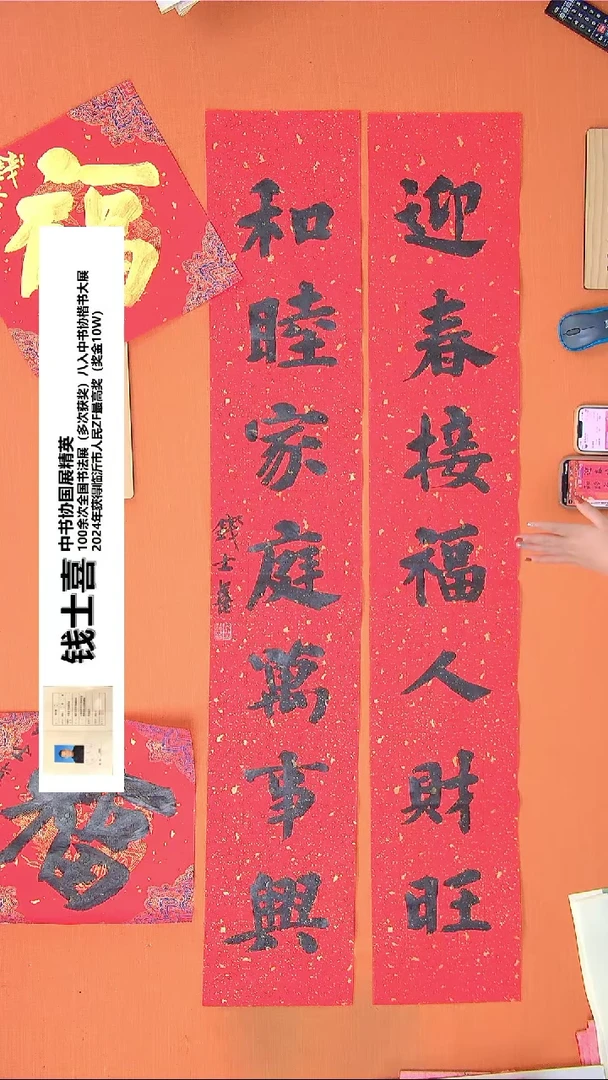 迎春接福人財旺
和睦家庭萬事興
錢士喜
福
春
钱士喜
中书协国展精英
100余次全国书法展（多次获奖）八入中书协楷书大展
2024年获得临沂市人民ZF最高奖（奖金10W）